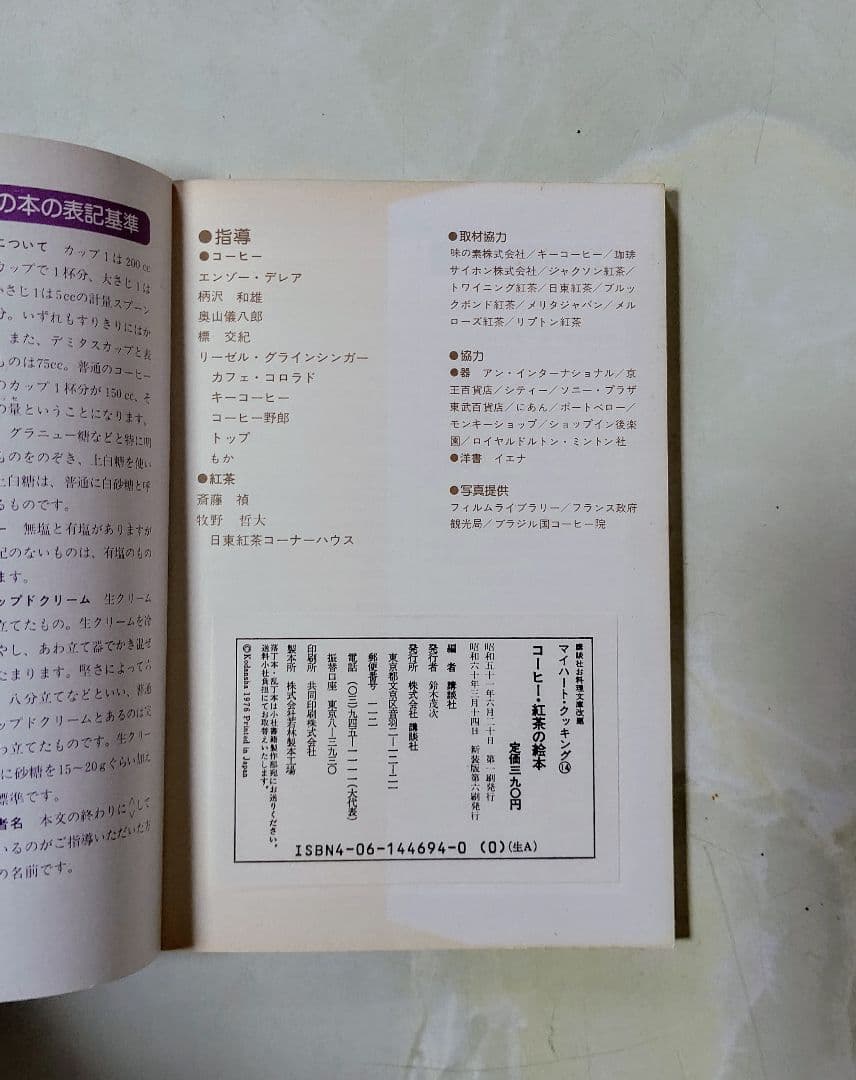 の本の表記基準
について　カップ1は200cc
カップで1杯分、大さじ1は
小さじ1は5ccの計量スプーン
分。いずれもすりきりにはか
また、デミタスカップと表
ものは75cc。普通のコーヒー
のカップ1杯分が150cc、そ
の量ということになります。
グラニュー糖などと特に明
ものをのぞき、上白糖を使い
上白糖は、普通に白砂糖と呼
るものです。
ー　無塩と有塩がありますが
記のないものは、有塩のもの
ます。
ップドクリーム　生クリーム
立てたもの。生クリームを冷
やし、あわ立て器でかき混ぜ
たまります。堅さによって六
八分立てなどといい、普通
ップドクリームとあるのは完
わ立てたものです。生クリー
に砂糖を15〜20gぐらい加え
標準です。
者名　本文の終わりに〈 〉して
いるのがご指導いただいた方
の名前です。
●指導
●コーヒー
エンゾー・デレア
柄沢　和雄
奥山儀八郎
標　交紀
リーゼル・グラインシンガー
カフェ・コロラド
キーコーヒー
コーヒー野郎
トップ
もか
●紅茶
斎藤　禎
牧野　哲大
日東紅茶コーナーハウス
●取材協力
味の素株式会社／キーコーヒー／珈琲
サイホン株式会社／ジャクソン紅茶／
トワイニング紅茶／日東紅茶／ブルッ
クボンド紅茶／メリタジャパン／メル
ローズ紅茶／リプトン紅茶
●協力
●器　アン・インターナショナル／京
王百貨店／シティー／ソニー・プラザ
東武百貨店／にあん／ポートベロー／
モンキーショップ／ショップイン後楽
園／ロイヤルドルトン・ミントン社
●洋書　イエナ
●写真提供
フィルムライブラリー／フランス政府
観光局／ブラジル国コーヒー院
講談社お料理文庫改題
マイハート・クッキング⑭
コーヒー・紅茶の絵本
定価三九〇円
昭和五十一年六月二十日　第一刷発行
昭和六十年三月十四日　新装版第六刷発行
編者　講談社
発行者　鈴木茂次
発行所　株式会社　講談社
東京都文京区音羽二—一二—二一
郵便番号　一一二
電話　(〇三)九四五—一一一一(大代表)
振替口座　東京八—三九三〇
印刷所　共同印刷株式会社
製本所　株式会社若林製本工場
落丁本・乱丁本は小社書籍製作部宛にお送りください。
送料小社負担にてお取替えいたします。
©Kodansha 1976 Printed in Japan
ISBN4-06-144694-0 (0)(生A)